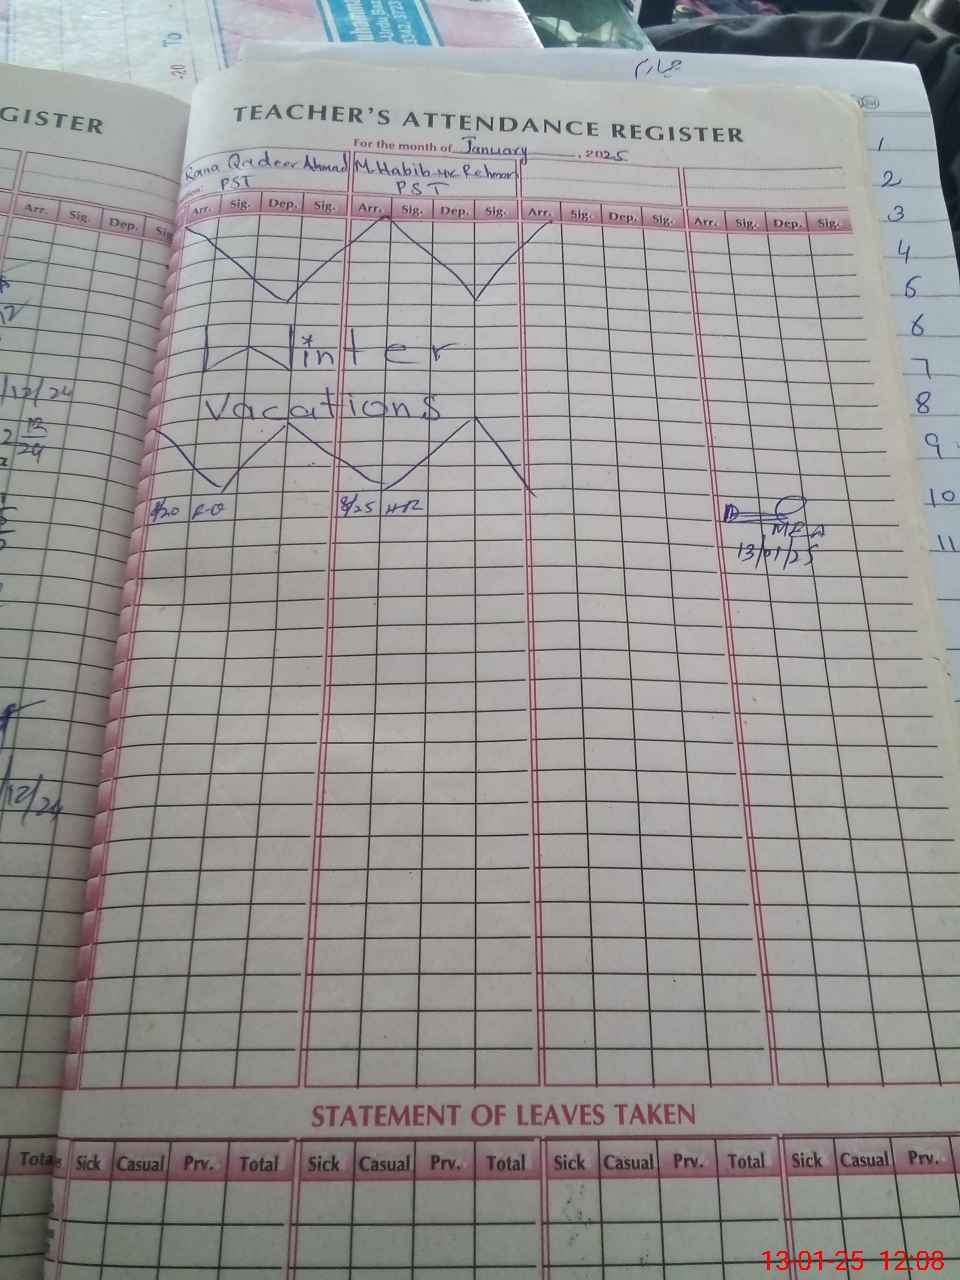 TEACHER'S ATTENDANCE REGISTER
For the month of January, 2025
Rana Qadeer Ahmad M. Habib ur Rehman
PST PST
Arr. Sig. Dep. Sig. Arr. Sig. Dep. Sig. Arr. Sig. Dep. Sig. Arr. Sig. Dep. Sig.
Winter
Vacations
MEA
13/01/25
STATEMENT OF LEAVES TAKEN
Sick Casual Prv. Total Sick Casual Prv. Total Sick Casual Prv. Total Sick Casual Prv.
GISTER
Arr. Sig. Dep. Sig
/12/24
/12/24
Total
-20 To
1
2
3
4
5
6
7
8
9
10
11
13-01-25 12:08